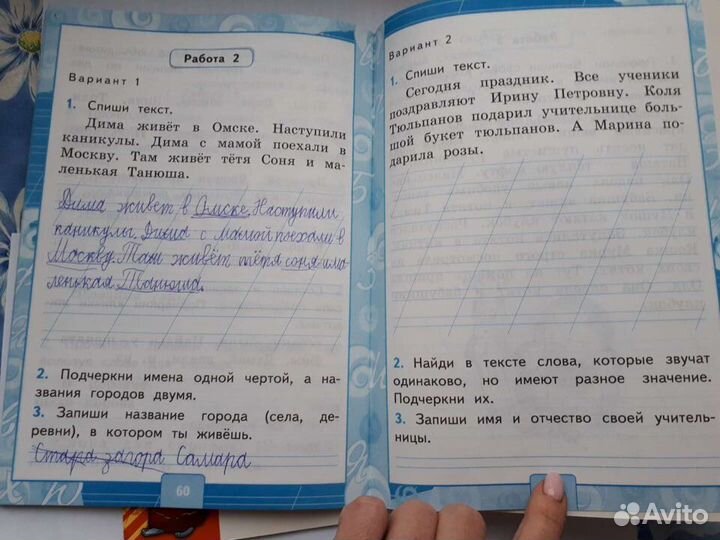 Работа 2
Вариант 1
1. Спиши текст.
Дима живёт в Омске. Наступили
каникулы. Дима с мамой поехали в
Москву. Там живёт тётя Соня и ма-
ленькая Танюша.
Дима живет в Омске. Наступили
каникулы. Дима с мамой поехали в
Москву. Там живёт тётя соня и ма
ленькая Танюша.
2. Подчеркни имена одной чертой, а на-
звания городов двумя.
3. Запиши название города (села, де-
ревни), в котором ты живёшь.
Стара загора Самара
60
Вариант 2
1. Спиши текст.
Сегодня праздник. Все ученики
поздравляют Ирину Петровну. Коля
Тюльпанов подарил учительнице боль-
шой букет тюльпанов. А Марина по-
дарила розы.
2. Найди в тексте слова, которые звучат
одинаково, но имеют разное значение.
Подчеркни их.
3. Запиши имя и отчество своей учитель-
ницы.
Avito